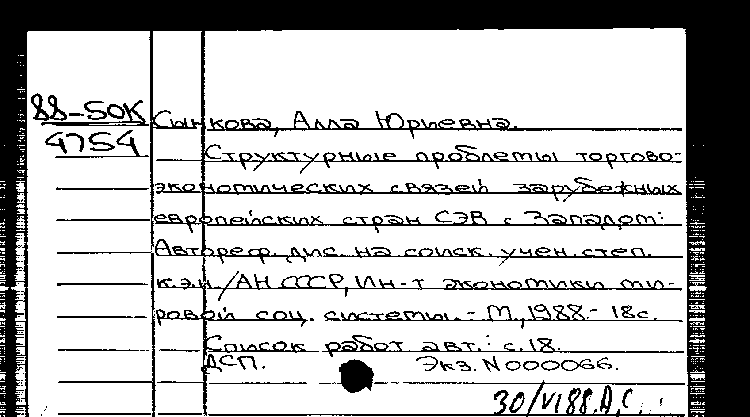 88-50К
4754
Сынкова, Алла Юриевна.
Структурные проблемы торгово-
экономических связей зарубежных
европейских стран СЭВ с Западом:
Автореф. дис. на соиск. учен. степ.
к.э.н. /АН СССР, Ин-т экономики ми-
ровой соц. системы. - М., 1988. - 18с.
Список работ авт.: с. 18.
ДСП. Экз. N000066.
30/VI 88. А.С.